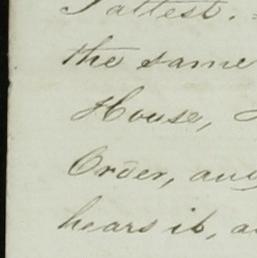 I attest.
the same
House,
Order, any
hears it, a